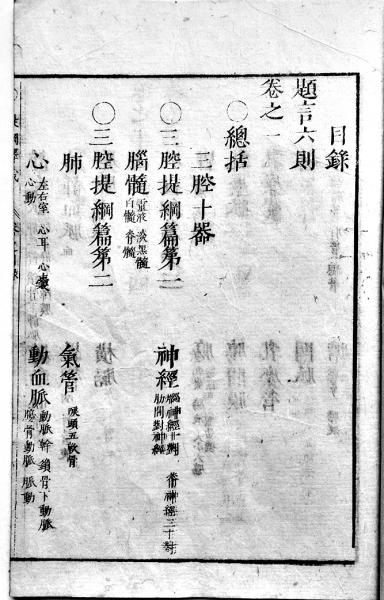 目錄
題言六則
卷之一
〇總括
三腔十器
〇三腔提綱篇第一
腦髓
淡黑髓
白髓 脊髓
神經
腦神經 脊神經三十對
肋間對神經
〇三腔提綱篇第二
肺
氣管
喉頭五軟骨
心
左右室 心耳 心囊
心動
動血脈
動脈幹 鎖骨下動脈
腸骨動脈 脈動